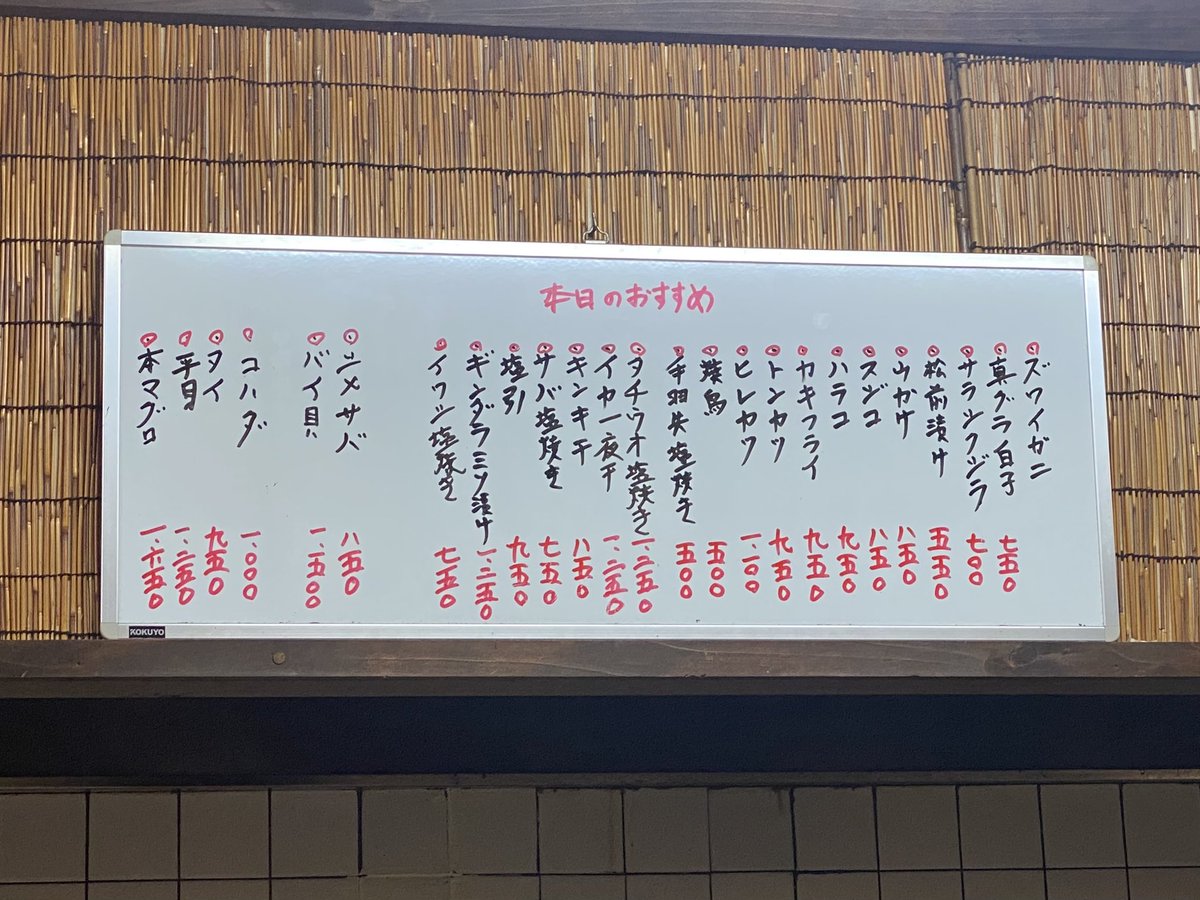 本日のおすすめ
ズワイガニ
真ダラ白子 七五0
サラシクジラ 七00
松前漬け 五五0
山かけ 八五0
スジコ 八五0
ハラコ 九五0
カキフライ 九五0
トンカツ 九五0
ヒレカツ 一、一00
五00
手羽先塩焼き 五00
タチウオ塩焼き 一、二五0
イカ一夜干 一、二五0
キンキ干 八五0
サバ塩焼き 七五0
塩引 九五0
ギンダラミソ漬け 一、二五0
イワシ塩焼き 七五0
シメサバ 八五0
バイ貝 一、五00
コハダ 一、000
タイ 九五0
平目 一、二五0
本マグロ 一、六五0
KOKUYO